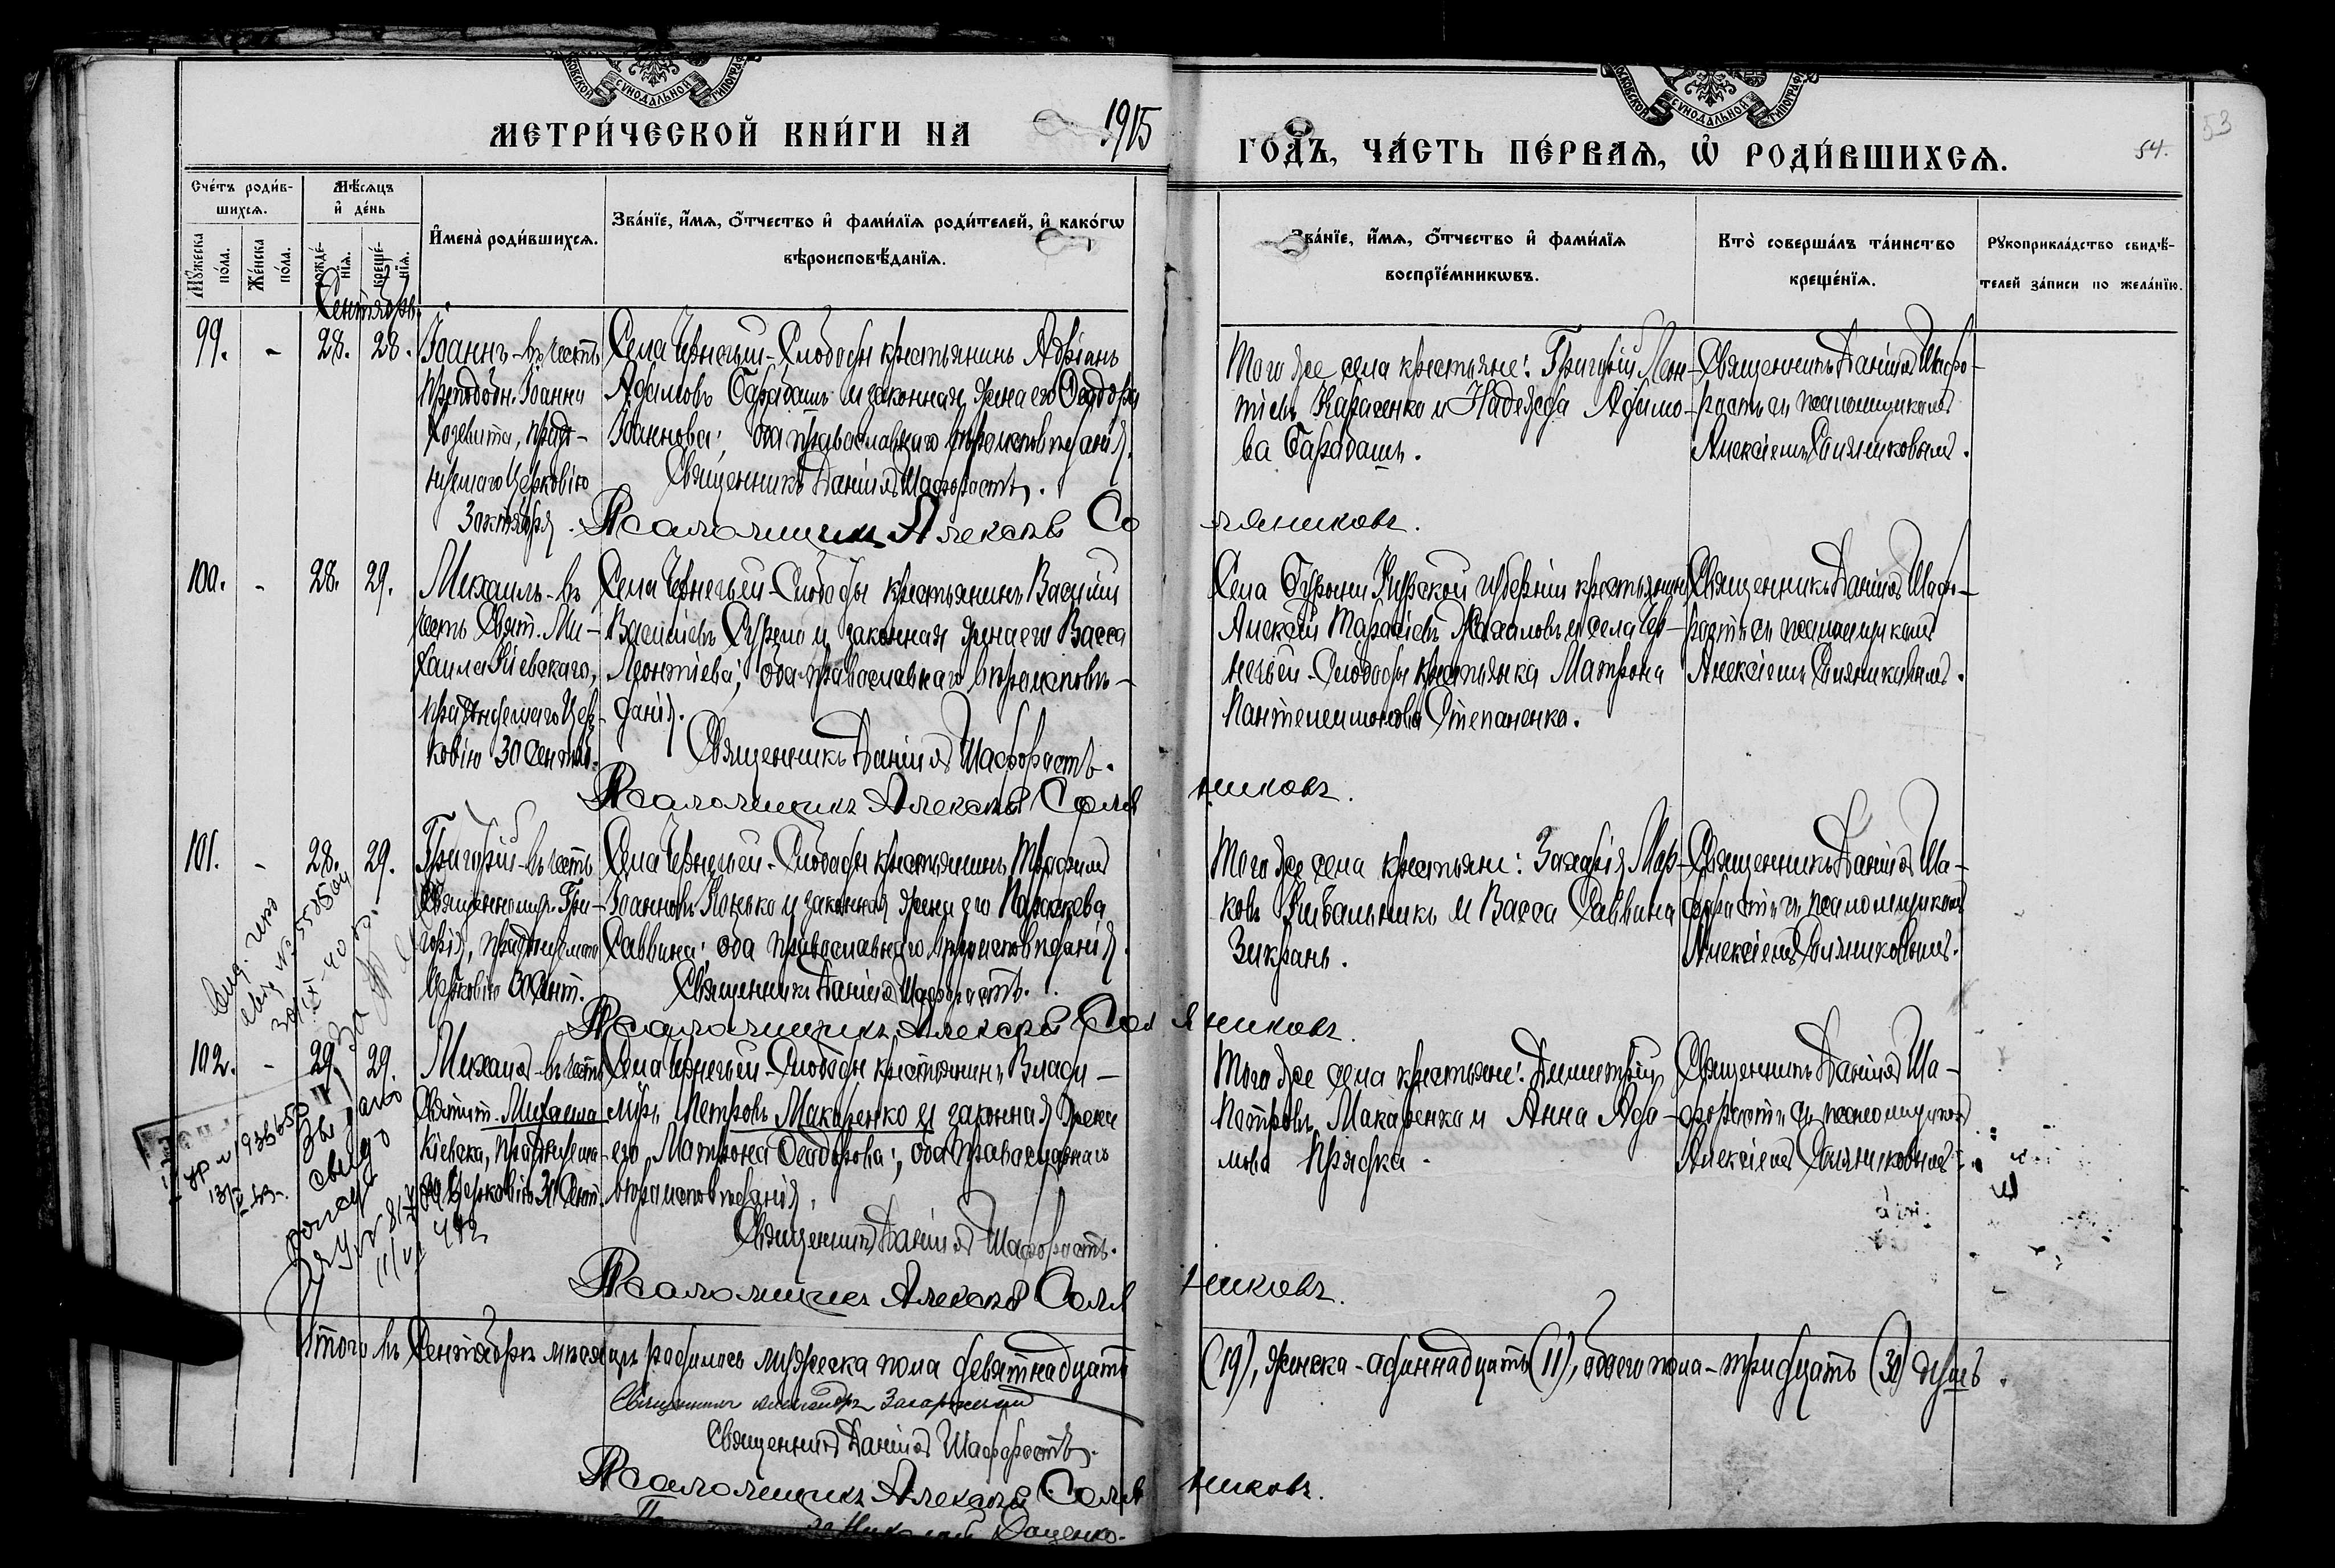 МЕТРИ́ЧЕСКОЙ КНИ́ГИ НА 1915 ГО́ДЪ, ЧА́СТЬ ПЕ́РВАЯ, Ѡ҆ РОДИ́ВШИХСЯ.
54.
53
Сче́тъ роди́в-
шихся.
Мѣ́сяцъ
и҆ де́нь
Му́жеска
по́ла.
Же́нска
по́ла.
рожде́-
нія.
креще́-
нія.
И҆мена̀ роди́вшихся.
Зва́нїе, и҆́мя, о҆́тчество и҆ фами́лїя роди́телей, и҆ како́гѡ
вѣроисповѣ́данїя.
Зва́нїе, и҆́мя, о҆́тчество и҆ фами́лїя
воспрїе́мникѡвъ.
Кто̀ соверша́лъ та́инство
креще́нїя.
Рукоприкла́дство свидѣ́-
телей за́писи по жела́нїю.
Сентябрь.
99. - 28. 28.
Іоаннъ - въ честь
преподобн. Іоанна
Хозевита, празд-
нуемаго Церковію
3 октября.
Села Чернечьей-Слободы крестьянинъ Адріанъ
Адамовъ Барабашъ и законная жена его Ѳеодора
Іоаннова; оба православнаго вѣроисповѣданія.
Священникъ Даніилъ Шафорастъ.
Псаломщикъ Алексѣй Соляниковъ.
Того же села крестьяне: Григорій Леон-
тіевъ Карасенко и Надежда Адамо-
ва Барабашъ.
Священникъ Даніилъ Шафо-
растъ съ псаломщикомъ
Алексіемъ Соляниковымъ.
100. - 28. 29.
Михаилъ - въ
честь Святит. Ми-
хаила Кіевскаго,
празднуемаго Цер-
ковію 30 Сентяб.
Села Чернечьей-Слободы крестьянинъ Василій
Василіевъ и законная жена его Васса
Леонтіева; оба православнаго вѣроисповѣ-
данія.
Священникъ Даніилъ Шафорастъ.
Псаломщикъ Алексѣй Соляниковъ.
Села Курской губерніи крестьянинъ
Алексій Тарасіевъ и села Чер-
нечьей-Слободы крестьянка Матрона
Пантелеимонова Степаненко.
Священникъ Даніилъ Шафо-
растъ съ псаломщикомъ
Алексіемъ Соляниковымъ.
101. - 28. 29.
Григорій - въ честь
Священномуч. Гри-
горія, празднуемаго
Церковію 30 Сент.
Села Чернечьей-Слободы крестьянинъ Трофимъ
Іоанновъ Конько и законная жена его Параскева
Саввина; оба православнаго вѣроисповѣданія.
Священникъ Даніилъ Шафорастъ.
Псаломщикъ Алексѣй Соляниковъ.
Того же села крестьяне: Захарія Мар-
ковъ Кибальникъ и Васса Саввина
Зикрань.
Священникъ Даніилъ Ша-
форастъ съ псаломщикомъ
Алексіемъ Соляниковымъ.
102. - 29. 29.
Михаилъ - въ честь
Святит. Михаила
Кіевска, празднуема-
го Церковію 30 Сент.
Села Чернечьей-Слободы крестьянинъ Влади-
міръ Петровъ Макаренко и законная жена
его Матрона Ѳеодорова; оба православнаго
вѣроисповѣданія.
Священникъ Даніилъ Шафорастъ.
Псаломщикъ Алексѣй Соляниковъ.
Того же села крестьяне: Димитрій
Петровъ Макаренко и Анна Ада-
мова Прядка.
Священникъ Даніилъ Ша-
форастъ съ псаломщикомъ
Алексіемъ Соляниковымъ.
Итого въ Сентябрѣ мѣсяцѣ родилось мужеска пола девятнадцать (19), женска - одиннадцать (11), обоего пола - тридцать (30) душъ.
Священникъ Александръ
Священникъ Даніилъ Шафорастъ.
Псаломщикъ Алексѣй Соляниковъ.